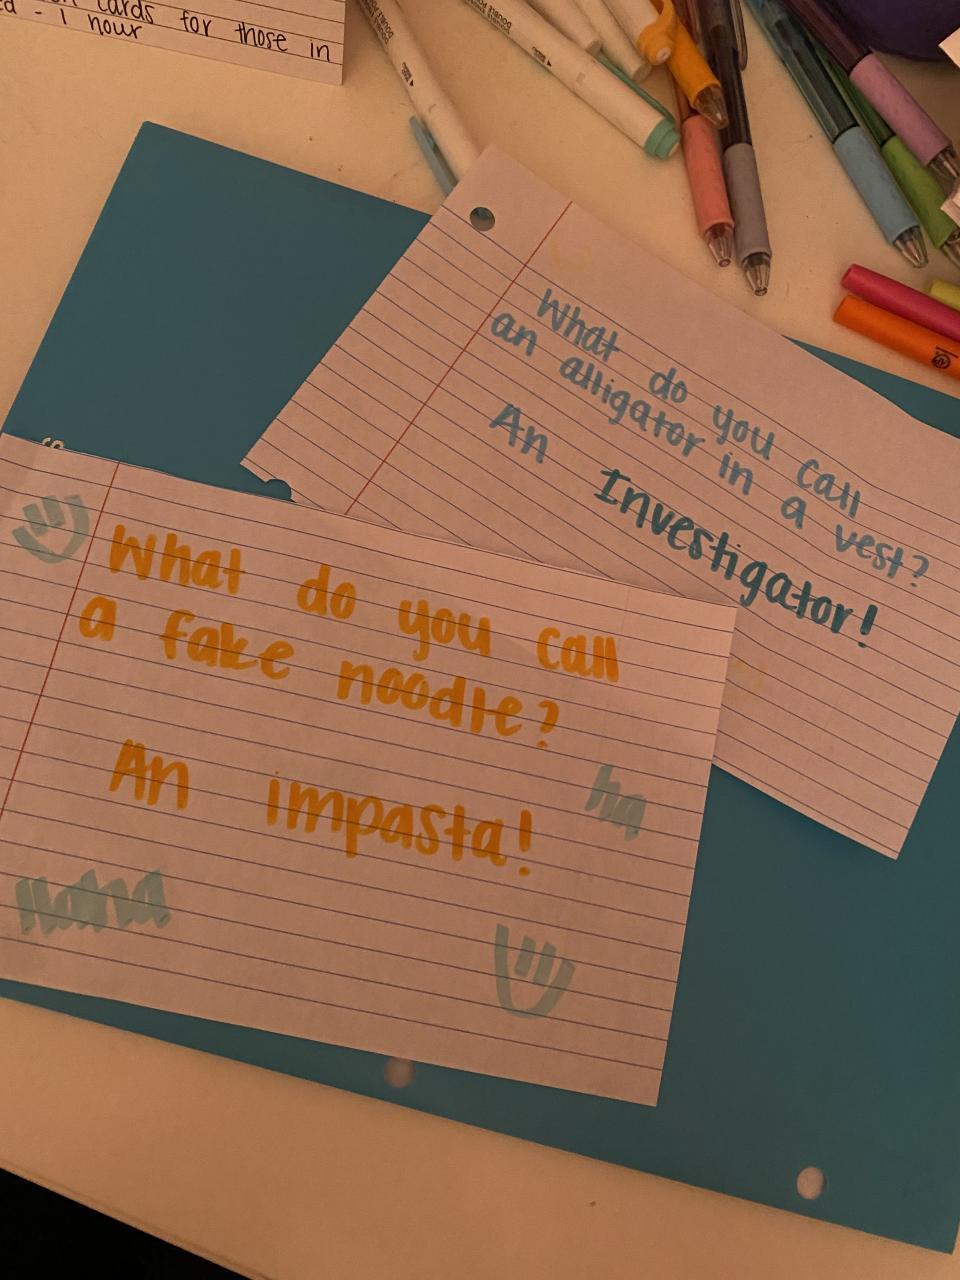 cards for those in
- 1 hour
What do you call
an alligator in a vest?
An Investigator!
What do you call
a fake noodle?
An impasta!
ha
Haha